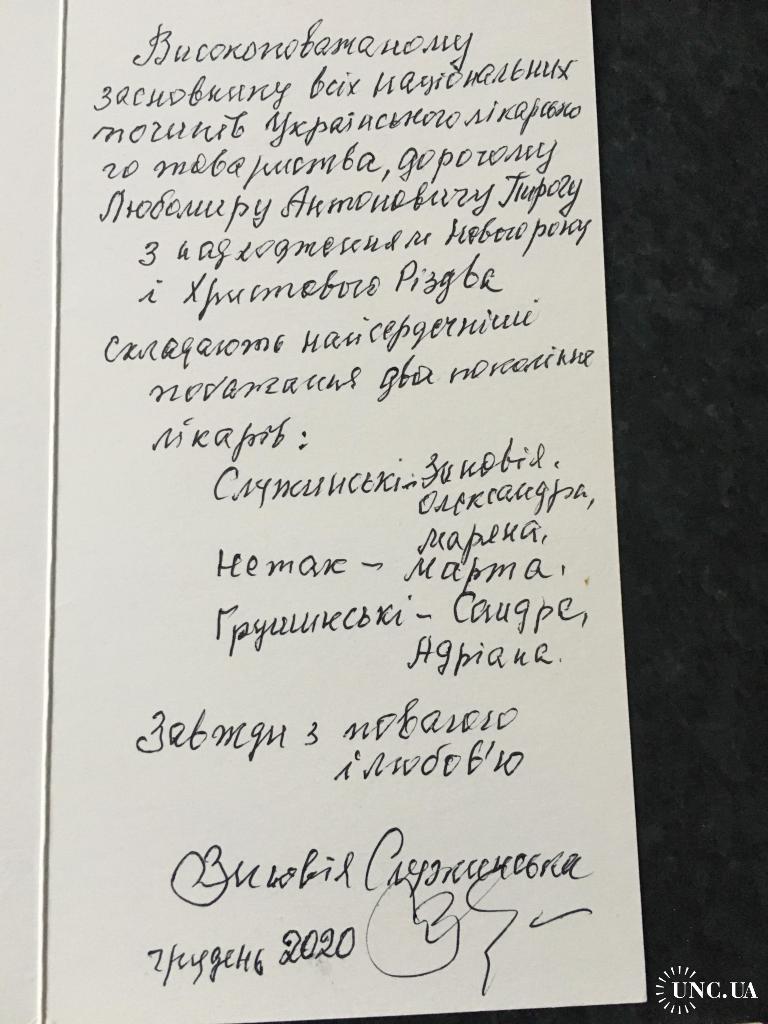 Високоповажаному
засновнику всіх національних
починів Українського лікарсько
го товариства, дорогому
Любомиру Антоновичу Пирогу
з надходженням Нового року
і Христового Різдва
складають найсердечніші
побажання два покоління
лікарів:
Служинські - Зиновія,
Олександра,
Маряна,
Нетак - Марта.
Грушинські - Сандра,
Адріана.
Завжди з повагою
і любов'ю
Зиновія Служинська
грудень 2020
UNC.UA